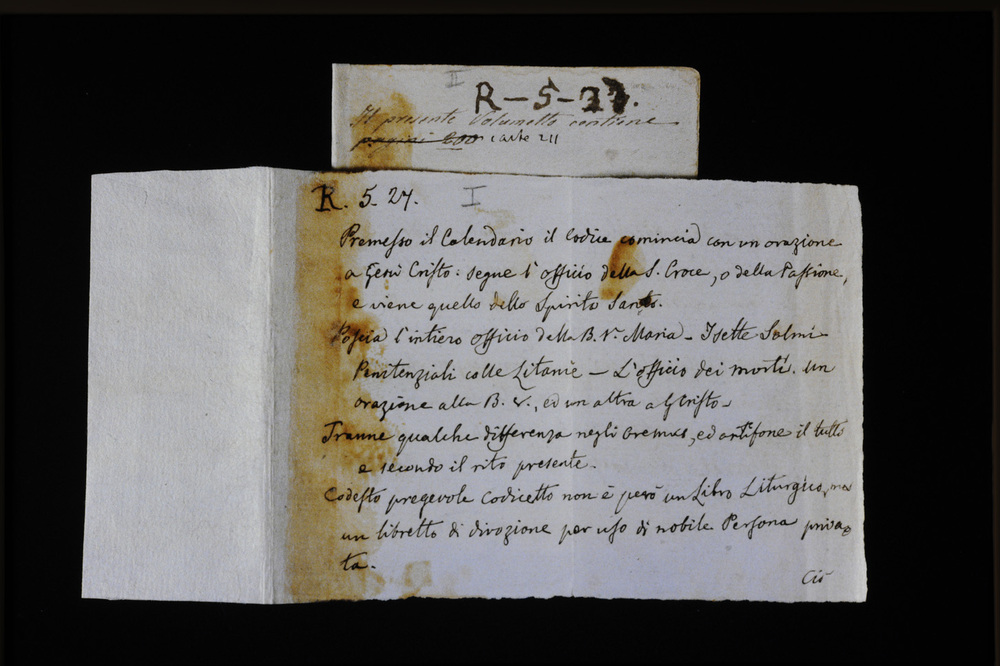 II
R-5-27.
Il presente Volumetto contiene
pagini 200 carte 211
R. 5. 27. I
Premesso il Calendario il Codice comincia con un orazione
a Gesù Cristo: segue l'officio della S. Croce, o della Passione,
e viene quello dello Spirito Santo.
Poscia l'intiero officio della B. V. Maria - I sette Salmi
Penitenziali colle Litanie - L'officio dei morti. un
orazione alla B. V., ed un altra a G Cristo -
Tranne qualche differenza negli oremus, ed antifone il tutto
e secondo il rito presente.
Codesto pregevole codicetto non è però un Libro Liturgico, ma
un libretto di divozione per uso di nobile Persona priva=
ta.
Ciò